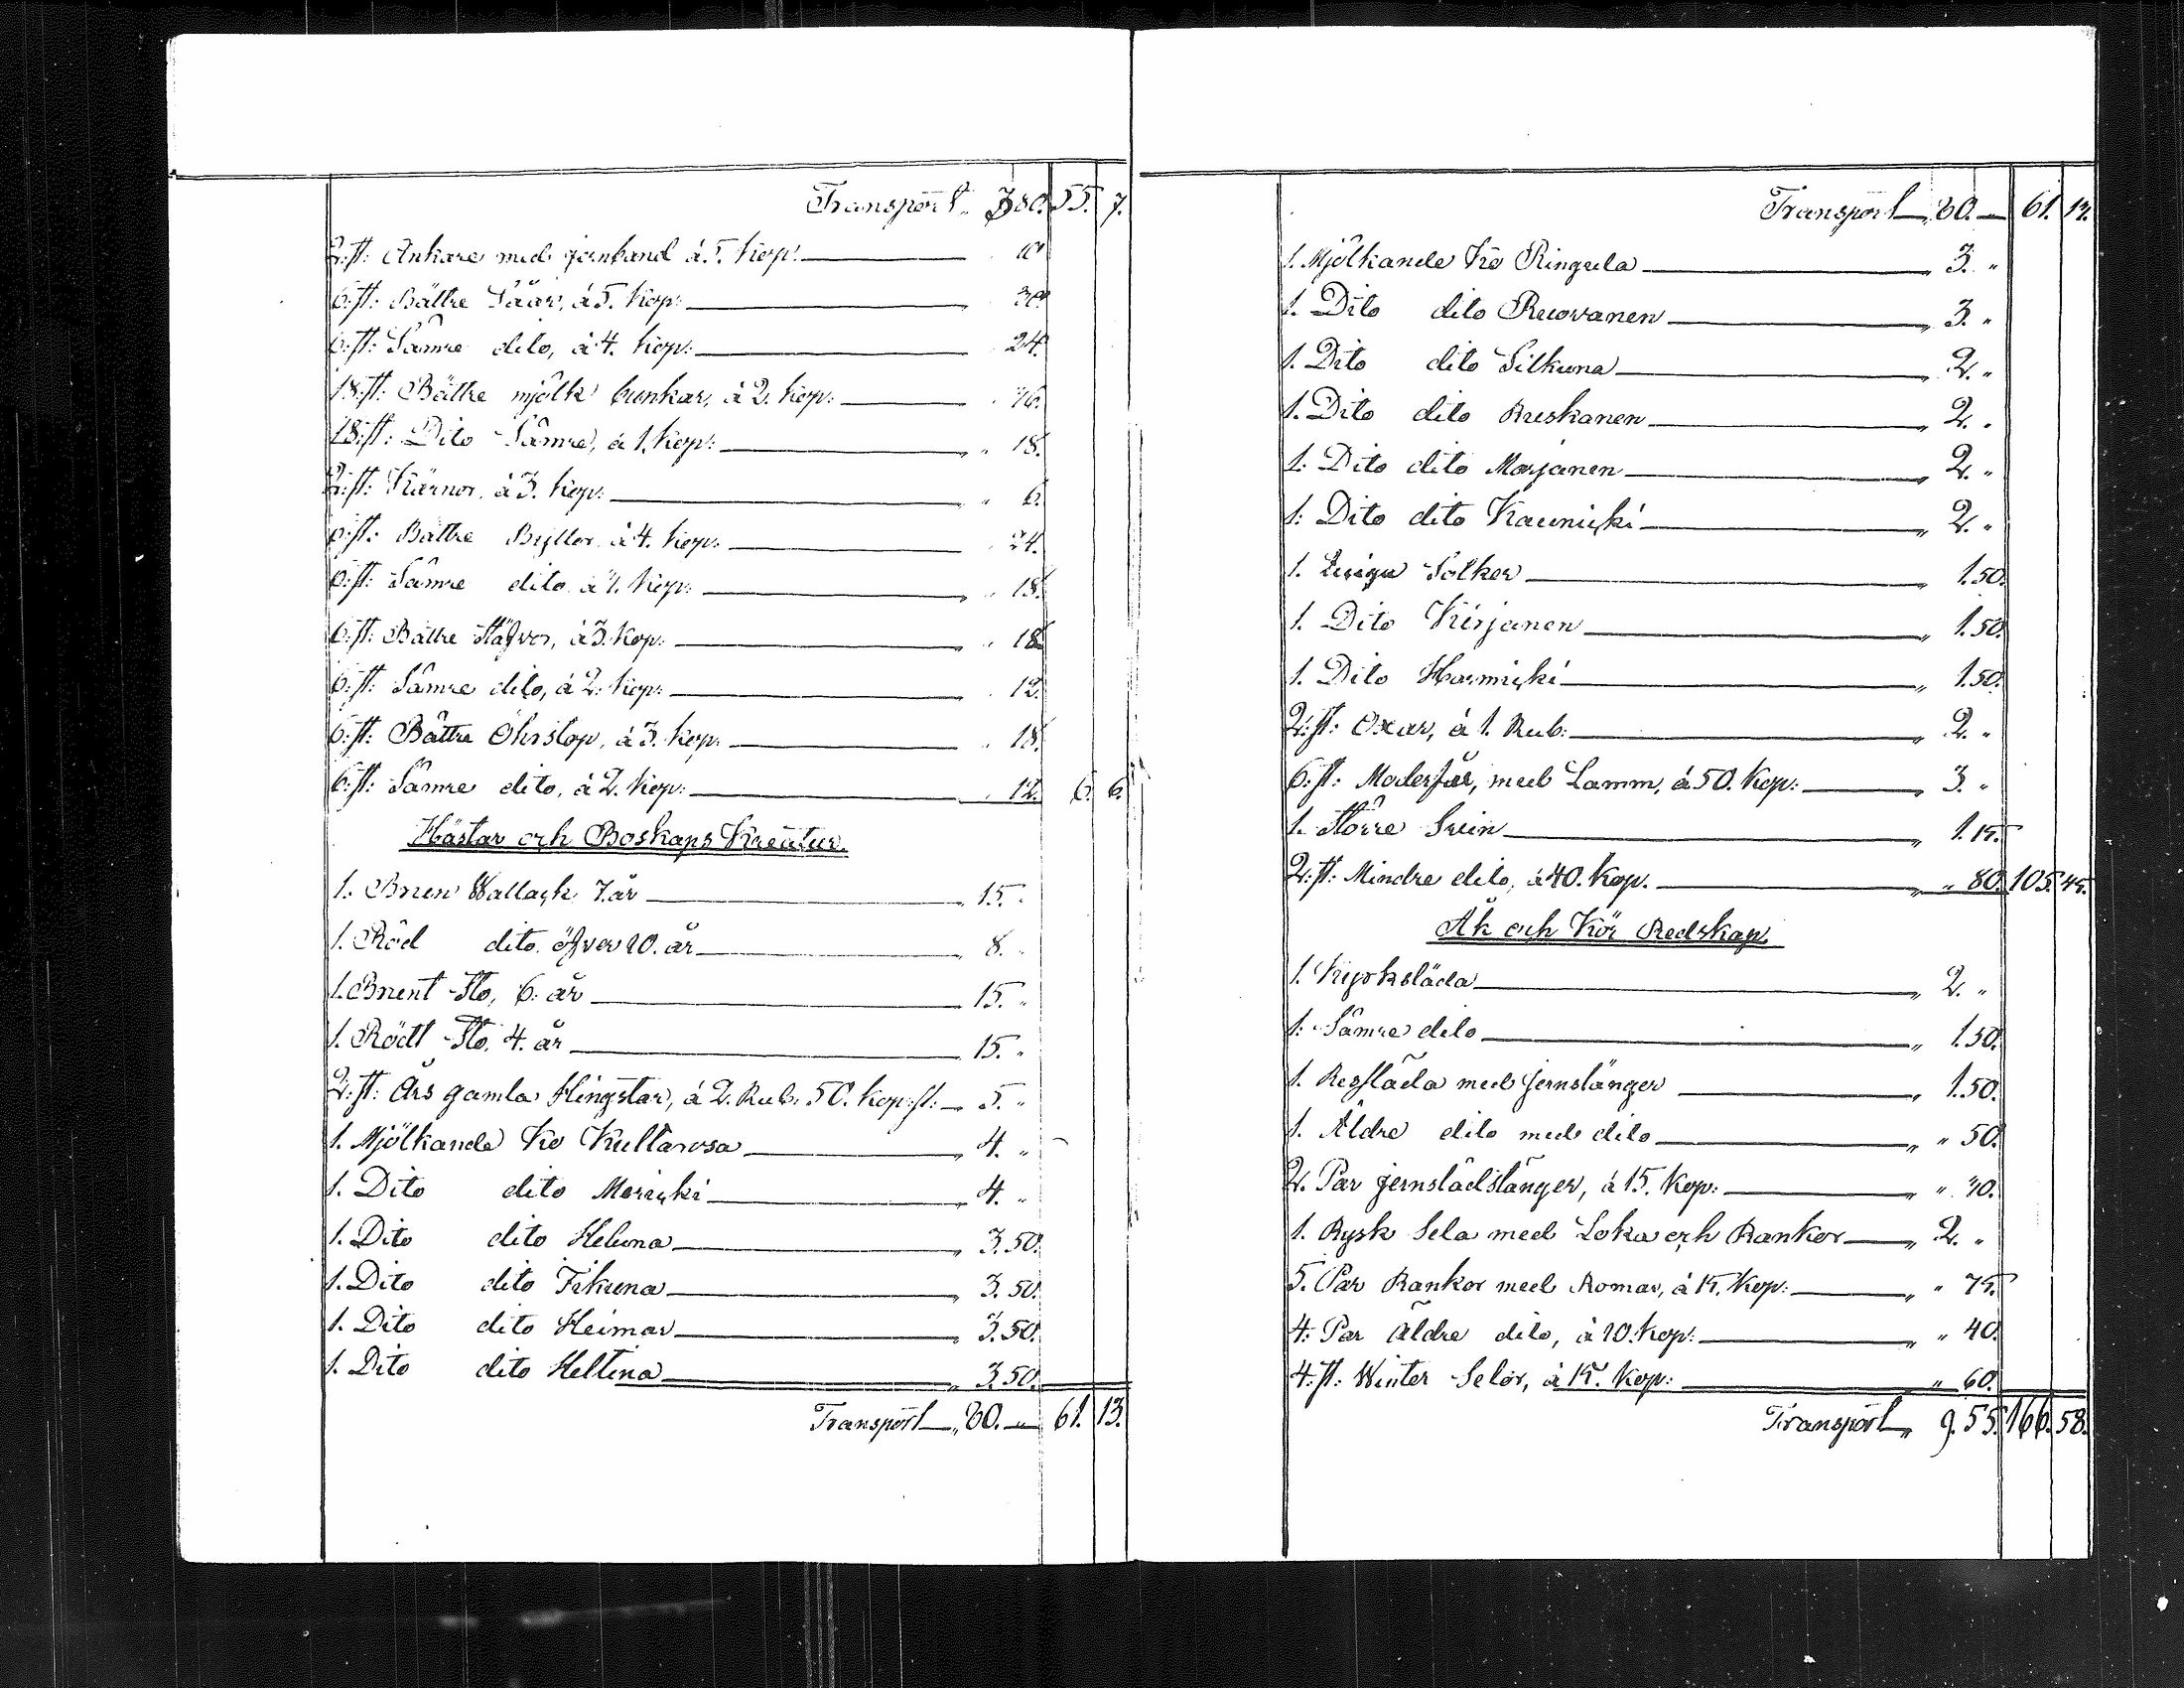 Transport 55. 7.
2: st: Ankare med jernband á 5. Kop: 10
6: st: Bättre Såar, á 5. Kop: 30
6: st: Sämre dito, á 4. Kop: 24.
18: st: Bättre mjölk bunkar, á 2. Kop: 36.
18: st: Dito Sämre, á 1. Kop: 18.
2: st: Kärnor á 3. Kop: 6.
6: st: Bättre Byttor á 4. Kop: 24.
6: st: Sämre dito á 3. Kop: 18.
6: st: Bättre Stäfvor, á 3. Kop: 18
6: st: Sämre dito, á 2. Kop: 12.
6: st: Bättre Öhrstop, á 3. Kop: 18.
6: st: Sämre dito, á 2. Kop: 12. 6. 6.
Hästar och Boskaps Kreatur.
1. Brun Wallack 7. år 15. "
1. Röd dito öfver 20. år 8. "
1. Brunt Sto, 6: år 15. "
1. Rödt Sto. 4. år 15. "
2: st: Års gamla Hingstar, á 2. Rub. 50. Kop: st: 5. "
1. Mjölkande Ko Kultarosa 4. "
1. Dito dito Mericki 4. "
1. Dito dito Heluna 3.50.
1. Dito dito Tikuna 3.50.
1. Dito dito Heimar 3.50.
1. Dito dito Heltina 3.50.
Transport 80. — 61. 13.
Transport 80. — 61. 13.
1. Mjölkande Ko Ringula 3. "
1. Dito dito Ruovanen 3. "
1. Dito dito Silkuna 2. "
1. Dito dito Ruskanen 2. "
1: Dito dito Marjanen 2. "
1: Dito dito Kaunicki 2. "
1. Quiga Solker 1.50.
1. Dito Kirjanen 1.50.
1. Dito Harmicki 1.50.
2: st: Oxar, á 1. Rub: 2. "
6: st: Moderfår, med Lamm, á 50. Kop: 3. "
1. Större Svin 1.15.
2: st: Mindre dito, á 40. Kop. " 80. 105. 45.
Åk och Kör Redskap.
1. Kyrksläda 2. "
1: Sämre dito 1.50.
1. Ressläda med jernslänger 1.50.
1. Äldre dito med dito " 50.
2. Par jernslädslänger, á 15. Kop: " 30.
1. Rysk Sela med Loka och Rankor 2. "
5. Par Rankor med Romar, á 15. Kop: " 75.
4: Par Äldre dito, á 10. Kop: " 40.
4: st: Winter Selar, á 15. Kop: " 60.
Transport 9.55. 166. 58.